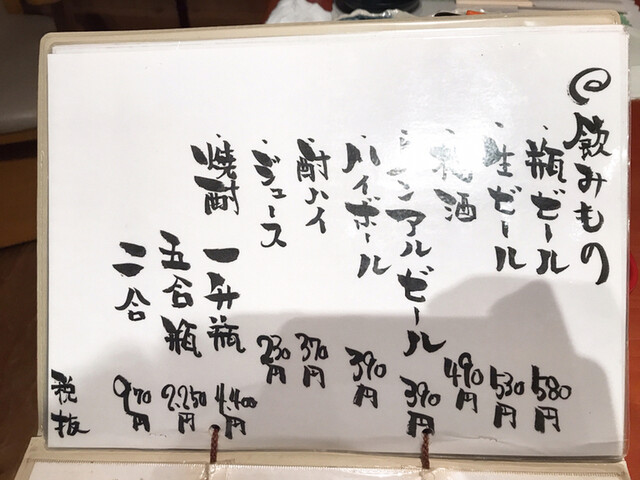 飲みもの
・瓶ビール 580円
・生ビール 530円
・梅酒 490円
・ノンアルビール 390円
・ハイボール 390円
・酎ハイ 370円
・ジュース 230円
・焼酎 一升瓶 4.400円
五合瓶 2.250円
二合 970円
税抜